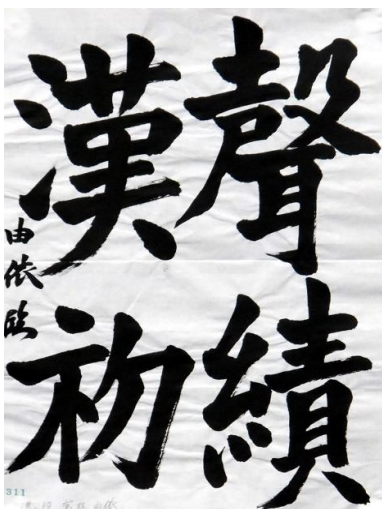 聲績
漢初
由依
311